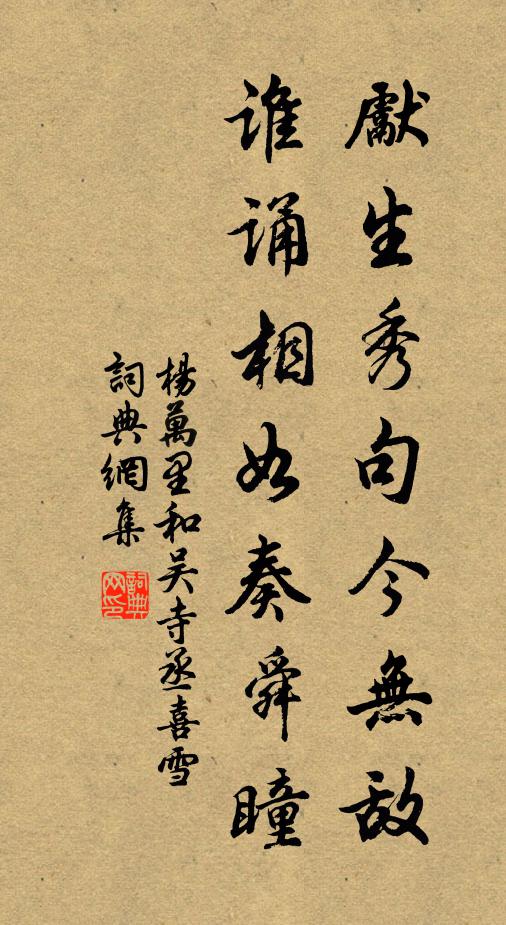 獻生秀句今無敌
谁诵相如奏舜瞳
楊萬里和吴寺丞喜雪
詞典網集
詞典网印